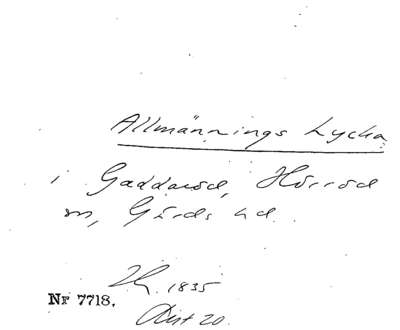 Allmännings Lycka
i Gaddaröd, Hörröd
sn, Gärds hd.
1835
Nr 7718.
Avst 20.